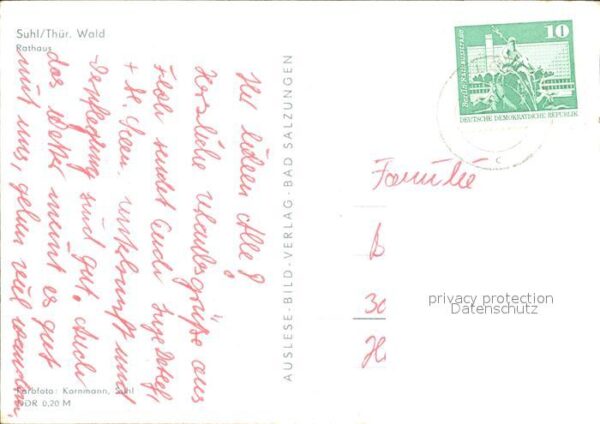 Suhl/Thür. Wald
Rathaus
Ihr lieben Alle!
Herzliche Urlaubsgrüße aus
Floh sendet Euch Inge Detlef
+ M. Unterkunft und
Verpflegung sind gut. Auch
das Wetter meint es gut
mit uns, gehen viel wandern
Farbfoto: Kornmann, Suhl
DDR 0,20 M
AUSLESE-BILD-VERLAG · BAD SALZUNGEN
10
DEUTSCHE DEMOKRATISCHE REPUBLIK
C
Familie
B
30
H
privacy protection
Datenschutz